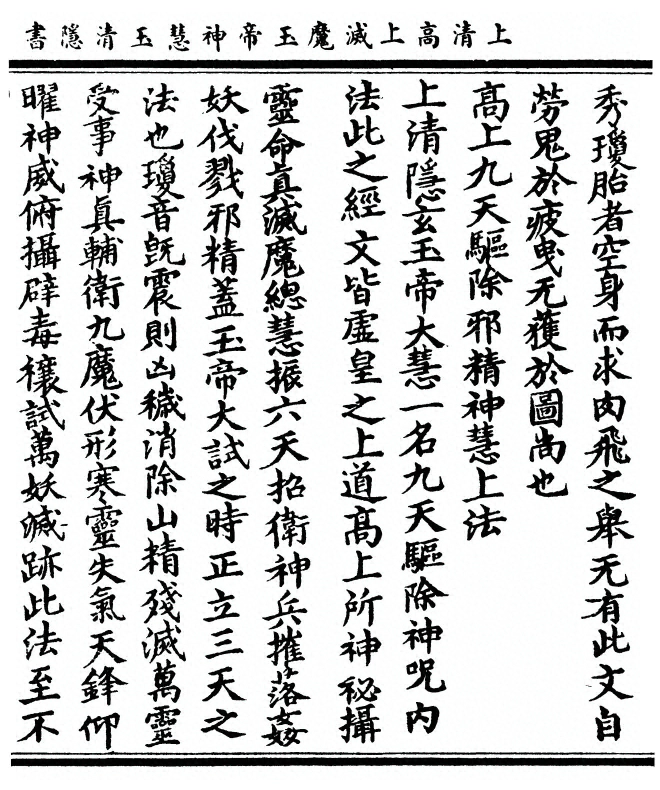 上清高上滅魔玉帝神慧玉清隱書
秀瓊胎者空身而求肉飛之舉无有此文自
勞鬼於疲曳无獲於圖尚也
高上九天驅除邪精神慧上法
上清隱玄玉帝大慧一名九天驅除神呪内
法此之經文皆虛皇之上道高上所神祕攝
靈命真滅魔總慧振六天招衛神兵摧落姦
妖伐戮邪精蓋玉帝大試之時正立三天之
法也瓊音旣震則凶穢消除山精殘滅萬靈
受事神真輔衛九魔伏形寒靈失氣天鋒仰
曜神威俯攝辟毒穰試萬妖滅跡此法至不